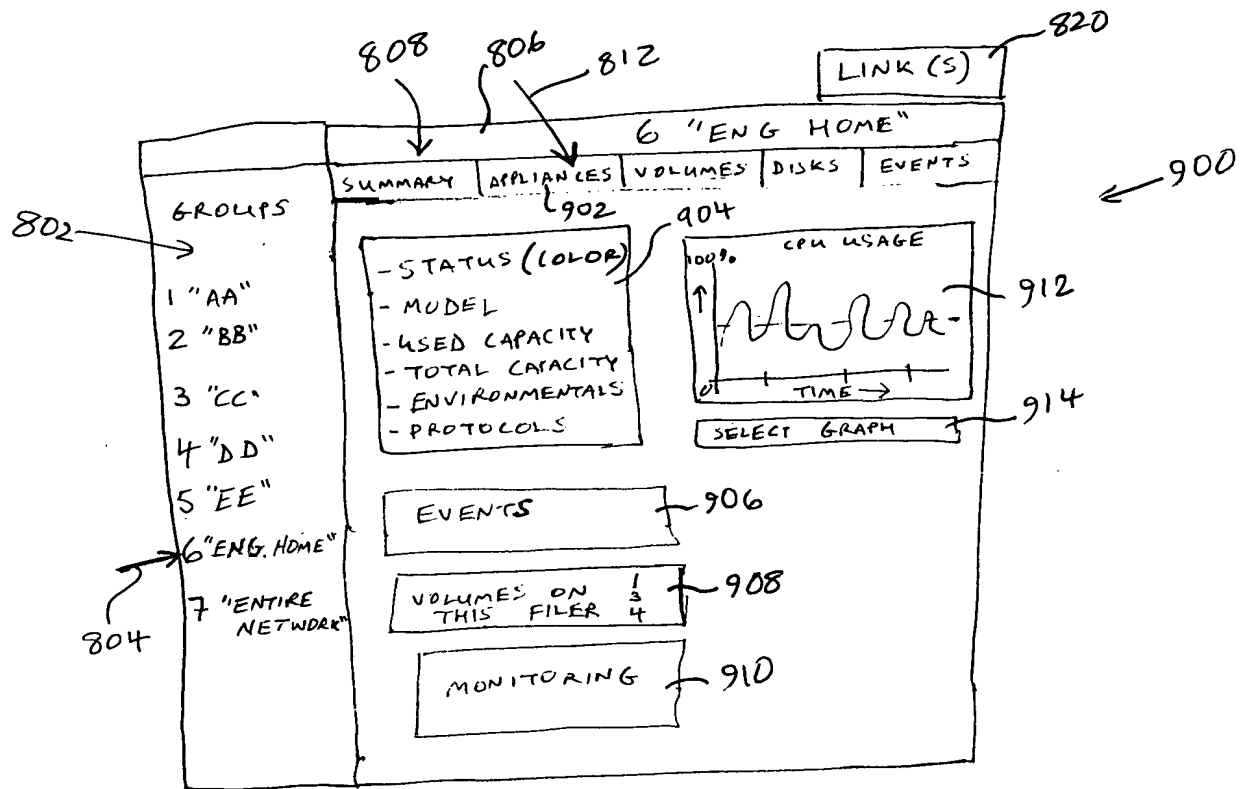 808
806
812
820
LINK (S)
6 "ENG HOME"
SUMMARY
APPLIANCES
VOLUMES
DISKS
EVENTS
900
902
904
802
GROUPS
1 "AA"
2 "BB"
3 "CC"
4 "DD"
5 "EE"
6 "ENG. HOME"
7 "ENTIRE
NETWORK"
804
- STATUS (COLOR)
- MODEL
- USED CAPACITY
- TOTAL CAPACITY
- ENVIRONMENTALS
- PROTOCOLS
CPU USAGE
100%
0
TIME →
912
914
SELECT GRAPH
EVENTS
906
VOLUMES ON 1
3
THIS FILER 4
908
MONITORING
910